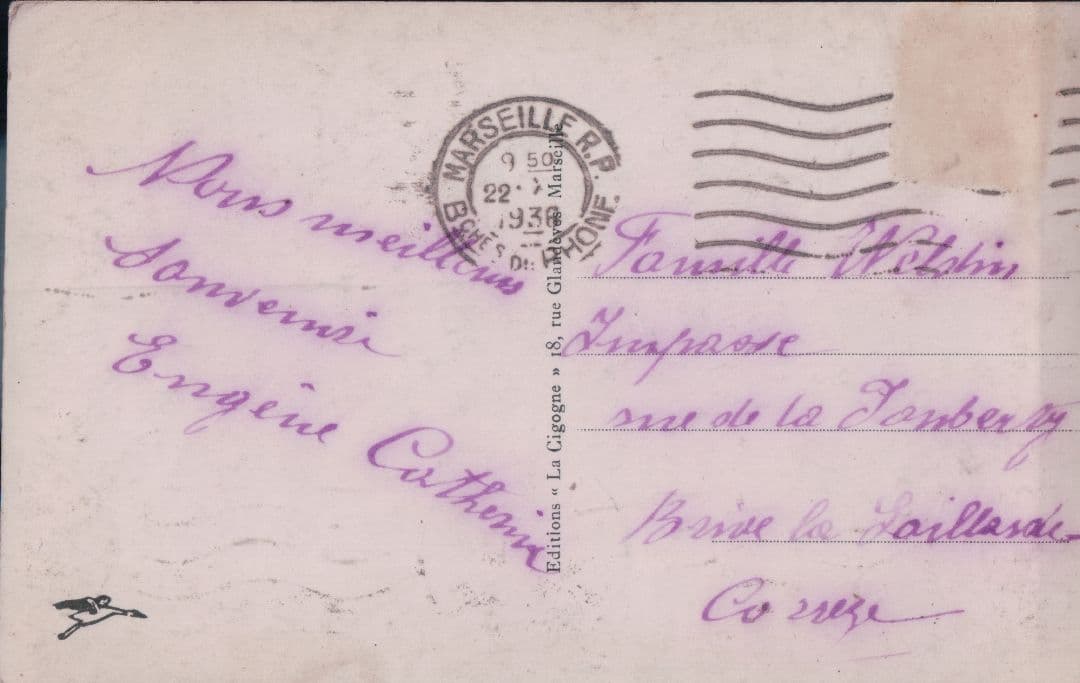 Nous meilleurs
Souvenirs
Eugène Catherine
MARSEILLE R.P.
9 50
22
1938
BCHES DU RHONE
Editions “ La Cigogne ” 18, rue Glandevès Marseille
Famille
Impasse
rue de la
Brive la Gaillarde
Corrèze